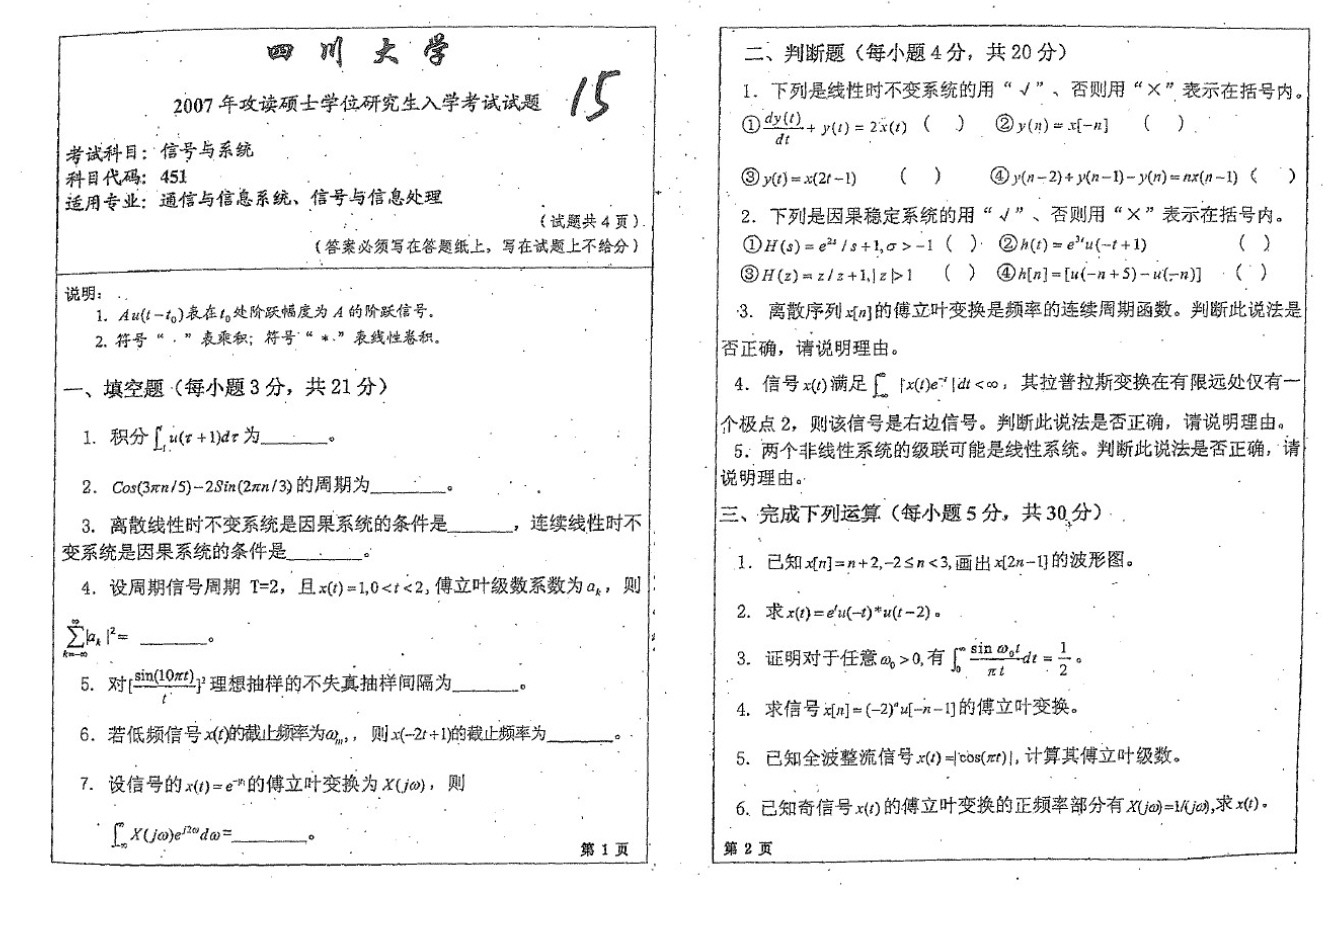 四川大学
15
2007年攻读硕士学位研究生入学考试试题
考试科目：信号与系统
科目代码：451
适用专业：通信与信息系统、信号与信息处理
（试题共4页）
（答案必须写在答题纸上，写在试题上不给分）
说明：
1. Au(t-t₀)表在t₀处阶跃幅度为A的阶跃信号。
2. 符号“·”表乘积；符号“*”表线性卷积。
一、填空题（每小题3分，共21分）
1. 积分∫₋ u(τ+1)dτ为______。
2. Cos(3πn/5)-2Sin(2πn/3)的周期为______。
3. 离散线性时不变系统是因果系统的条件是______，连续线性时不
变系统是因果系统的条件是______。
4. 设周期信号周期 T=2，且x(t)=1,0<t<2,傅立叶级数系数为aₖ，则
∑_{k=-∞}^{∞}|aₖ|²= ______。
5. 对[sin(10πt)/t]²理想抽样的不失真抽样间隔为______。
6. 若低频信号x(t)的截止频率为ωₘ,，则x(-2t+1)的截止频率为______。
7. 设信号的x(t)=e^{-|t|}的傅立叶变换为X(jω)，则
∫_{-∞}^{∞}X(jω)e^{j2ω}dω=______。
第 1 页
二、判断题（每小题4分，共20分）
1. 下列是线性时不变系统的用“√”、否则用“×”表示在括号内。
①dy(t)/dt+y(t)=2x(t)（ ） ②y(n)=x[-n]（ ）
③y(t)=x(2t-1)（ ） ④y(n-2)+y(n-1)-y(n)=nx(n-1)（ ）
2. 下列是因果稳定系统的用“√”、否则用“×”表示在括号内。
①H(s)=e^{2s}/s+1,σ>-1（ ） ②h(t)=e^{3t}u(-t+1)（ ）
③H(z)=z/z+1,|z|>1（ ） ④h[n]=[u(-n+5)-u(-n)]（ ）
3. 离散序列x[n]的傅立叶变换是频率的连续周期函数。判断此说法是
否正确，请说明理由。
4. 信号x(t)满足∫_{-∞}^{∞}|x(t)e^{-t}|dt<∞，其拉普拉斯变换在有限远处仅有一
个极点2，则该信号是右边信号。判断此说法是否正确，请说明理由。
5. 两个非线性系统的级联可能是线性系统。判断此说法是否正确，请
说明理由。
三、完成下列运算（每小题5分，共30分）
1. 已知x[n]=n+2,-2≤n<3,画出x[2n-1]的波形图。
2. 求x(t)=eᵗu(-t)*u(t-2)。
3. 证明对于任意ω₀>0,有∫₀^{∞} sin ω₀t/πt dt=1/2。
4. 求信号x[n]=(-2)ⁿu[-n-1]的傅立叶变换。
5. 已知全波整流信号x(t)=|cos(πt)|,计算其傅立叶级数。
6. 已知奇信号x(t)的傅立叶变换的正频率部分有X(jω)=1/(jω),求x(t)。
第 2 页